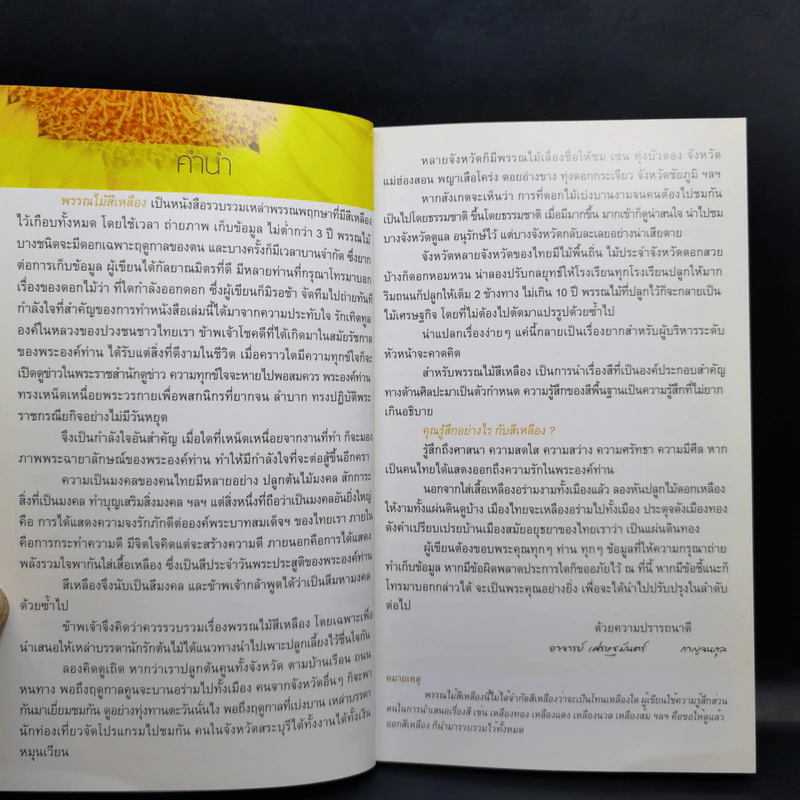 คำนำ
พรรณไม้สีเหลือง เป็นหนังสือรวบรวมเหล่าพรรณพฤกษาที่มีสีเหลือง
ไว้เกือบทั้งหมด โดยใช้เวลา ถ่ายภาพ เก็บข้อมูล ไม่ต่ำกว่า 3 ปี พรรณไม้
บางชนิดจะมีดอกเฉพาะฤดูกาลของตน และบางครั้งก็มีเวลาบานจำกัด ซึ่งยาก
ต่อการเก็บข้อมูล ผู้เขียนได้กัลยาณมิตรที่ดี มีหลายท่านที่กรุณาโทรมาบอก
เรื่องของดอกไม้ว่า ที่ใดกำลังออกดอก ซึ่งผู้เขียนก็มิรอช้า จัดทีมไปถ่ายทันที
กำลังใจที่สำคัญของการทำหนังสือเล่มนี้ได้มาจากความประทับใจ รักเทิดทูล
องค์ในหลวงของปวงชนชาวไทยเรา ข้าพเจ้าโชคดีที่ได้เกิดมาในสมัยรัชกาล
ของพระองค์ท่าน ได้รับแต่สิ่งที่ดีงามในชีวิต เมื่อคราวใดมีความทุกข์ใจก็จะ
เปิดดูข่าวในพระราชสำนักดูข่าว ความทุกข์ใจจะหายไปพอสมควร พระองค์ท่าน
ทรงเหน็ดเหนื่อยพระวรกายเพื่อพสกนิกรที่ยากจน ลำบาก ทรงปฏิบัติพระ
ราชกรณียกิจอย่างไม่มีวันหยุด
จึงเป็นกำลังใจอันสำคัญ เมื่อใดที่เหน็ดเหนื่อยจากงานที่ทำ ก็จะมอง
ภาพพระฉายาลักษณ์ของพระองค์ท่าน ทำให้มีกำลังใจที่จะต่อสู้ขึ้นอีกครา
ความเป็นมงคลของคนไทยมีหลายอย่าง ปลูกต้นไม้มงคล สักการะ
สิ่งที่เป็นมงคล ทำบุญเสริมสิ่งมงคล ฯลฯ แต่สิ่งหนึ่งที่ถือว่าเป็นมงคลอันยิ่งใหญ่
คือ การได้แสดงความจงรักภักดีต่อองค์พระบาทสมเด็จฯ ของไทยเรา ภายใน
คือการกระทำความดี มีจิตใจคิดแต่จะสร้างความดี ภายนอกคือการได้แสดง
พลังรวมใจพากันใส่เสื้อเหลือง ซึ่งเป็นสีประจำวันพระประสูติของพระองค์ท่าน
สีเหลืองจึงนับเป็นสีมงคล และข้าพเจ้ากล้าพูดได้ว่าเป็นสีมหามงคล
ด้วยซ้ำไป
ข้าพเจ้าจึงคิดว่าควรรวบรวมเรื่องพรรณไม้สีเหลือง โดยเฉพาะเพื่อ
นำเสนอให้เหล่าบรรดานักรักต้นไม้ได้แนวทางนำไปเพาะปลูกเลี้ยงไว้ชื่นใจกัน
ลองคิดดูเถิด หากว่าเราปลูกต้นคูนทั้งจังหวัด ตามบ้านเรือน ถนน
หนทาง พอถึงฤดูกาลคูนจะบานอร่ามไปทั้งเมือง คนจากจังหวัดอื่นๆ ก็จะพา
กันมาเยี่ยมชมกัน ดูอย่างทุ่งทานตะวันนั่นไง พอถึงฤดูกาลที่เบ่งบาน เหล่าบรรดา
นักท่องเที่ยวจัดโปรแกรมไปชมกัน คนในจังหวัดสระบุรีได้ทั้งงานได้ทั้งเงิน
หมุนเวียน
หลายจังหวัดก็มีพรรณไม้เลื่องชื่อให้ชม เช่น ทุ่งบัวตอง จังหวัด
แม่ฮ่องสอน พญาเสือโคร่ง ดอยอ่างขาง ทุ่งกระเจียว จังหวัดชัยภูมิ ฯลฯ
หากสังเกตจะเห็นว่า การที่ดอกไม้เบ่งบานงามจนคนต้องไปชมกัน
เป็นไปโดยธรรมชาติ ขึ้นโดยธรรมชาติ เมื่อมีมากขึ้น มากเข้าก็ดูน่าสนใจ น่าไปชม
บางจังหวัดดูแล อนุรักษ์ไว้ แต่บางจังหวัดกลับละเลยอย่างน่าเสียดาย
จังหวัดหลายจังหวัดของไทยมีไม้พื้นถิ่น ไม้ประจำจังหวัดดอกสวย
บ้างก็ดอกหอมหวน น่าลองปรับกลยุทธ์ให้โรงเรียนทุกโรงเรียนปลูกให้มาก
ริมถนนก็ปลูกให้เต็ม 2 ข้างทาง ไม่เกิน 10 ปี พรรณไม้ที่ปลูกไว้ก็จะกลายเป็น
ไม้เศรษฐกิจ โดยที่ไม่ต้องไปตัดมาแปรรูปด้วยซ้ำไป
น่าแปลกเรื่องง่ายๆ แค่นี้กลายเป็นเรื่องยากสำหรับผู้บริหารระดับ
หัวหน้าจะคาดคิด
สำหรับพรรณไม้สีเหลือง เป็นการนำเรื่องสีที่เป็นองค์ประกอบสำคัญ
ทางด้านศิลปะมาเป็นตัวกำหนด ความรู้สึกของสีพื้นฐานเป็นความรู้สึกที่ไม่ยาก
เกินอธิบาย
คุณรู้สึกอย่างไร กับสีเหลือง ?
รู้สึกถึงศาสนา ความสดใส ความสว่าง ความศรัทธา ความมีศีล หาก
เป็นคนไทยได้แสดงออกถึงความรักในพระองค์ท่าน
นอกจากใส่เสื้อเหลืองอร่ามงามทั้งเมืองแล้ว ลองหันปลูกไม้ดอกเหลือง
ให้งามทั้งแผ่นดินดูบ้าง เมืองไทยจะเหลืองอร่ามไปทั้งเมือง ประดุจดังเมืองทอง
ดังคำเปรียบเปรยบ้านเมืองสมัยอยุธยาของไทยเราว่า เป็นแผ่นดินทอง
ผู้เขียนต้องขอบพระคุณทุกๆ ท่าน ทุกๆ ข้อมูลที่ให้ความกรุณาถ่าย
ทำเก็บข้อมูล หากมีข้อผิดพลาดประการใดก็ขออภัยไว้ ณ ที่นี้ หากมีข้อชี้แนะก็
โทรมาบอกกล่าวได้ จะเป็นพระคุณอย่างยิ่ง เพื่อจะได้นำไปปรับปรุงในลำดับ
ต่อไป
ด้วยความปรารถนาดี
อาจารย์ เศรษฐมันตร์ กาญจนกุล
หมายเหตุ
พรรณไม้สีเหลืองนี้ไม่ได้จำกัดสีเหลืองว่าจะเป็นโทนเหลืองใด ผู้เขียนใช้ความรู้สึกส่วน
ตนในการนำเสนอเรื่องสี เช่น เหลืองทอง เหลืองแดง เหลืองนวล เหลืองส้ม ฯลฯ คือขอให้ดูแล้ว
ออกสีเหลือง ก็นำมารวบรวมไว้ทั้งหมด